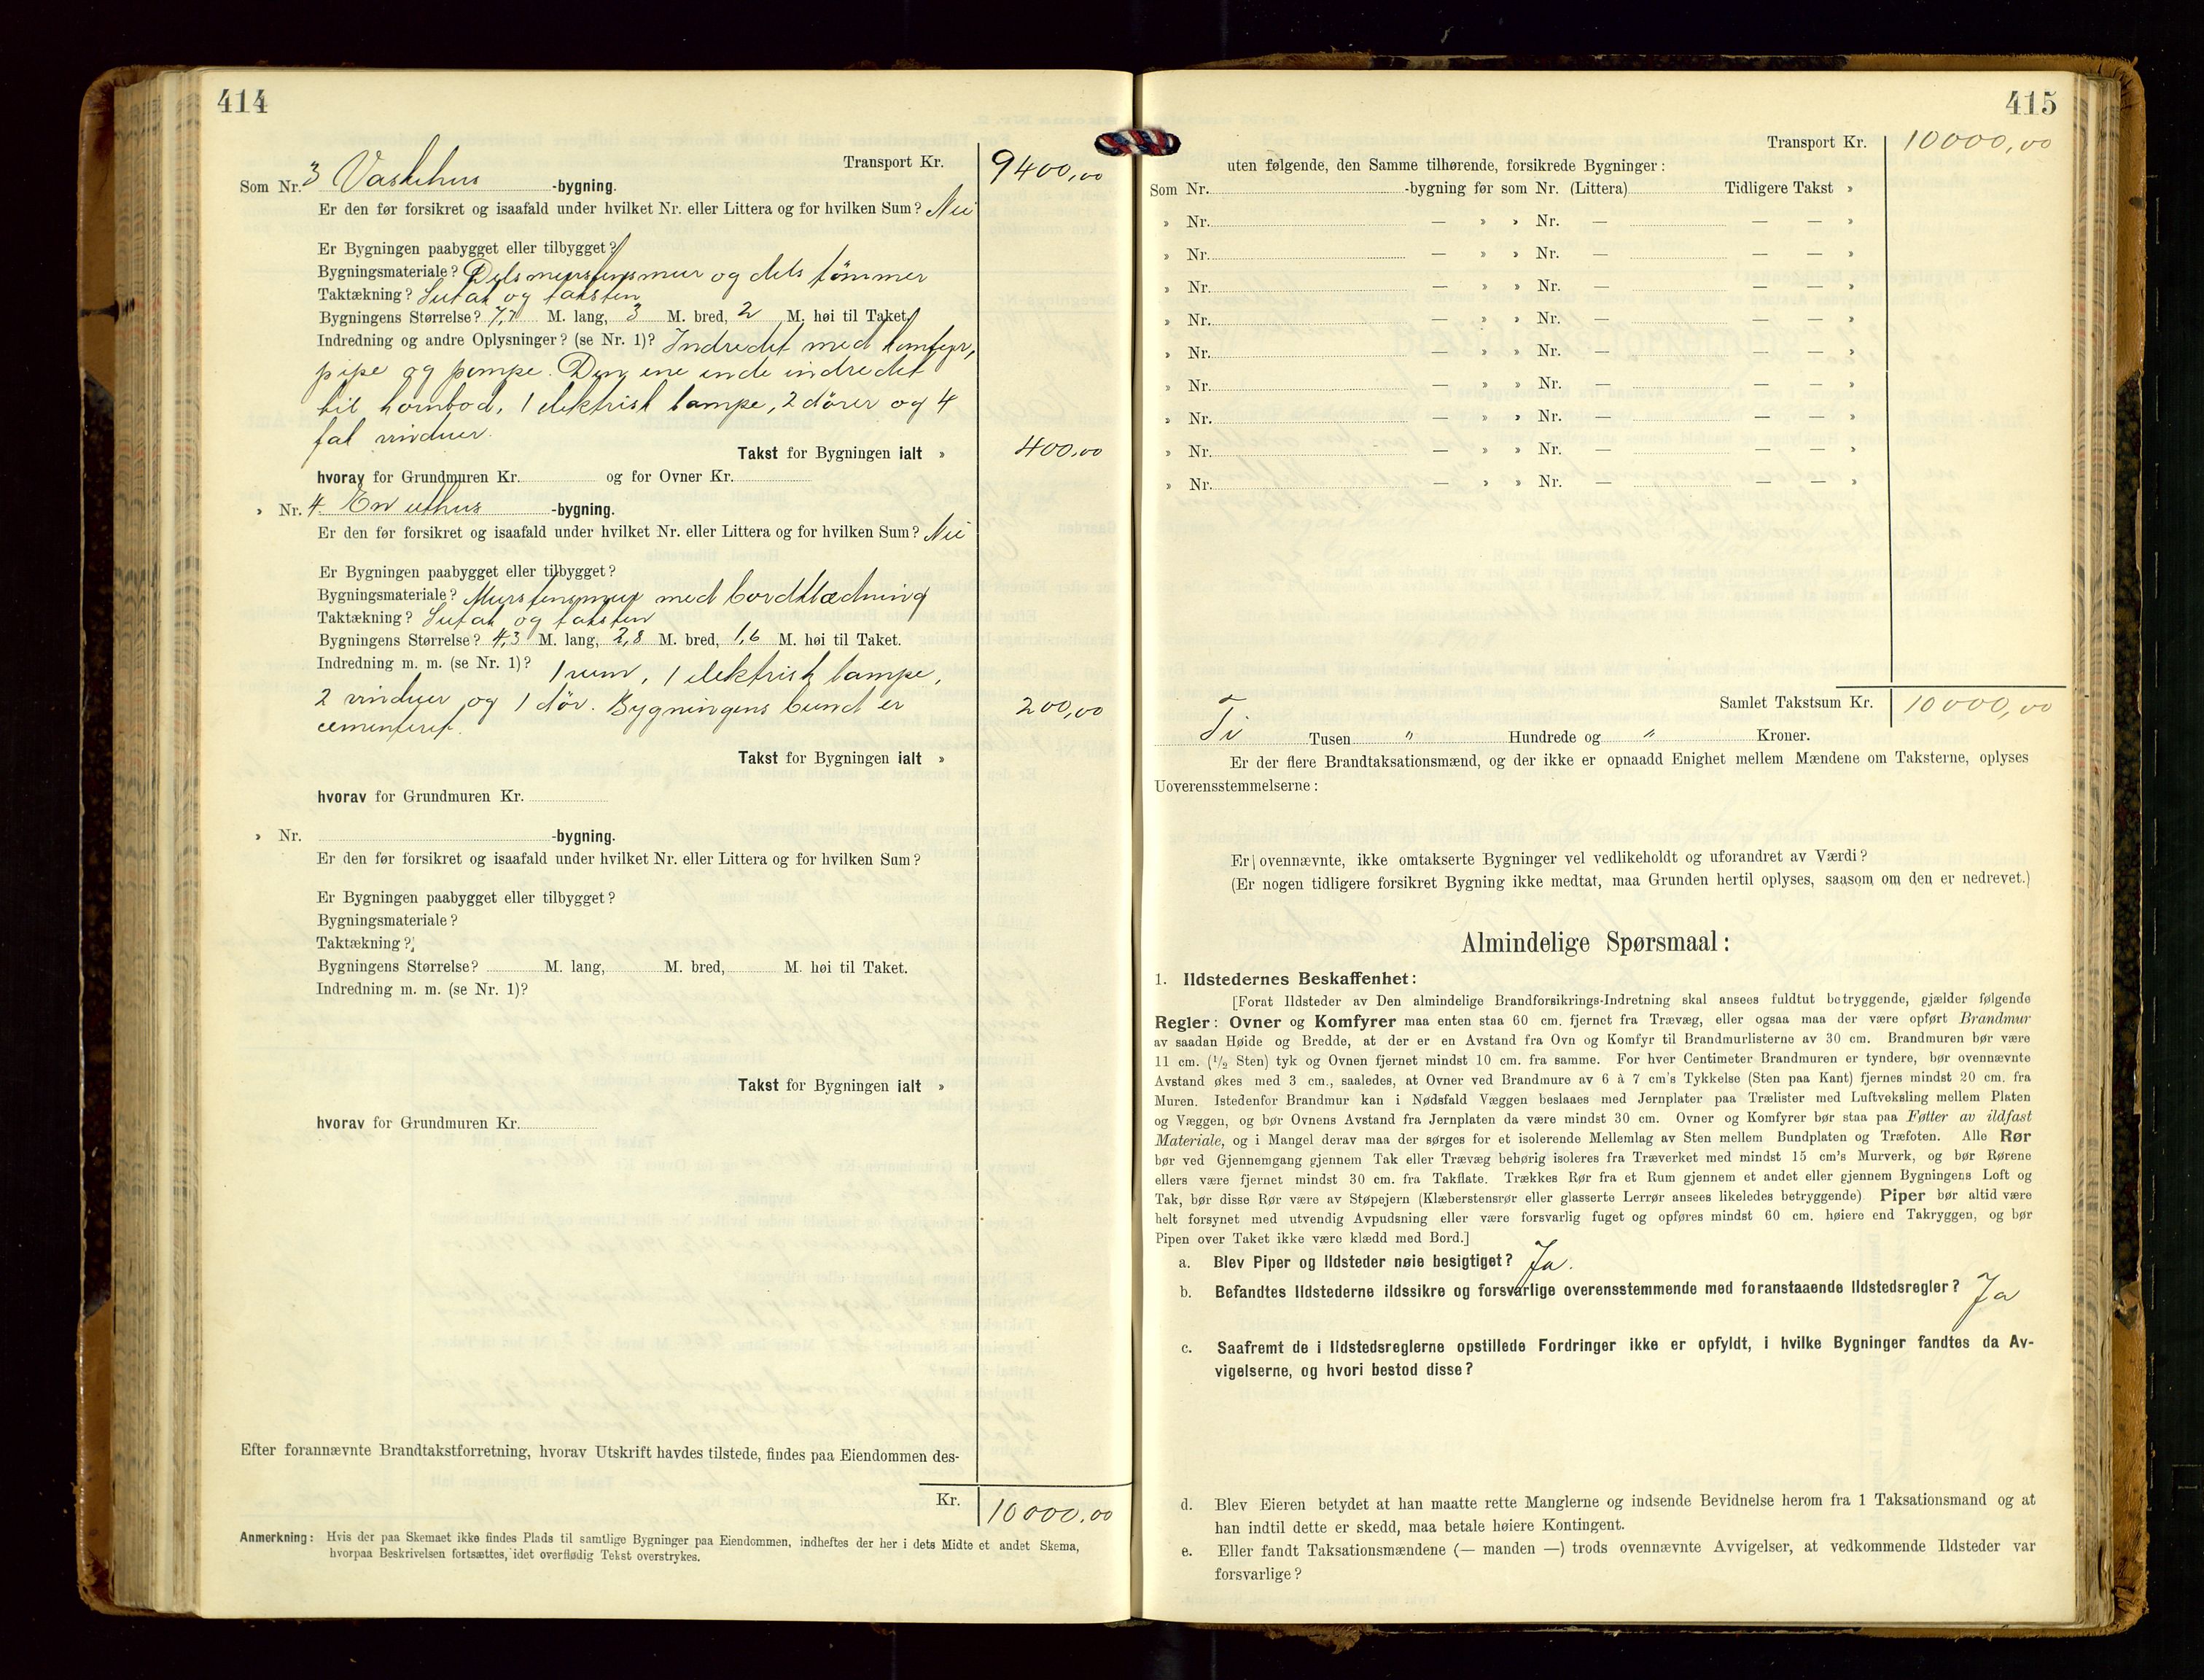 414
Transport Kr. 9400,00
Som Nr. 3 Vaskehus -bygning.
Er den før forsikret og isaafald under hvilket Nr. eller Littera og for hvilken Sum? Nei
Er Bygningen paabygget eller tilbygget?
Bygningsmateriale? Dels murstensmur og dels tömmer
Taktækning? Sutak og taksten
Bygningens Størrelse? 7,7 M. lang, 3 M. bred, 2 M. høi til Taket.
Indredning og andre Oplysninger? (se Nr. 1)? Indredet med komfyr,
pipe og pompe. Den ene ende indredet
til kornbod, 1 elektrisk lampe, 2 dörer og 4
fal vinduer.
Takst for Bygningen ialt » 400,00
hvorav for Grundmuren Kr. og for Ovner Kr.
» Nr. 4 En uthus -bygning.
Er den før forsikret og isaafald under hvilket Nr. eller Littera og for hvilken Sum? Nei
Er Bygningen paabygget eller tilbygget?
Bygningsmateriale? Murstensmur med bordklædning
Taktækning? Sutak og taksten
Bygningens Størrelse? 4,3 M. lang, 2,8 M. bred, 1,6 M. høi til Taket.
Indredning m. m. (se Nr. 1)? 1 rum, 1 elektrisk lampe,
2 vinduer og 1 dör. Bygningens bund er 200,00
cementeret.
Takst for Bygningen ialt »
hvorav for Grundmuren Kr.
» Nr. -bygning.
Er den før forsikret og isaafald under hvilket Nr. eller Littera og for hvilken Sum?
Er Bygningen paabygget eller tilbygget?
Bygningsmateriale?
Taktækning?
Bygningens Størrelse? M. lang, M. bred, M. høi til Taket.
Indredning m. m. (se Nr. 1)?
Takst for Bygningen ialt »
hvorav for Grundmuren Kr.
Efter forannævnte Brandtakstforretning, hvorav Utskrift havdes tilstede, findes paa Eiendommen des-
Kr. 10000,00
Anmerkning: Hvis der paa Skemaet ikke findes Plads til samtlige Bygninger paa Eiendommen, indheftes der her i dets Midte et andet Skema,
hvorpaa Beskrivelsen fortsættes, idet overflødig Tekst overstrykes.
415
Transport Kr. 10000,00
uten følgende, den Samme tilhørende, forsikrede Bygninger:
Som Nr. -bygning før som Nr. (Littera) Tidligere Takst »
» Nr. — » » Nr. — — — »
» Nr. — » » Nr. — — — »
» Nr. — » » Nr. — — — »
» Nr. — » » Nr. — — — »
» Nr. — » » Nr. — — — »
» Nr. — » » Nr. — — — »
» Nr. — » » Nr. — — — »
» Nr. — » » Nr. — — — »
» Nr. — » » Nr. — — — »
Samlet Takstsum Kr. 10000,00
Ti Tusen " Hundrede og " Kroner.
Er der flere Brandtaksationsmænd, og der ikke er opnaadd Enighet mellem Mændene om Taksterne, oplyses
Uoverensstemmelserne:
Er ovennævnte, ikke omtakserte Bygninger vel vedlikeholdt og uforandret av Værdi?
(Er nogen tidligere forsikret Bygning ikke medtat, maa Grunden hertil oplyses, saasom om den er nedrevet.)
Almindelige Spørsmaal:
1. Ildstedernes Beskaffenhet:
[Forat Ildsteder av Den almindelige Brandforsikrings-Indretning skal ansees fuldtut betryggende, gjælder følgende
Regler: Ovner og Komfyrer maa enten staa 60 cm. fjernet fra Trævæg, eller ogsaa maa der være opført Brandmur
av saadan Høide og Bredde, at der er en Avstand fra Ovn og Komfyr til Brandmurlisterne av 30 cm. Brandmuren bør være
11 cm. (1/2 Sten) tyk og Ovnen fjernet mindst 10 cm. fra samme. For hver Centimeter Brandmuren er tyndere, bør ovennævnte
Avstand økes med 3 cm., saaledes, at Ovner ved Brandmure av 6 à 7 cm's Tykkelse (Sten paa Kant) fjernes mindst 20 cm. fra
Muren. Istedenfor Brandmur kan i Nødsfald Væggen beslaaes med Jernplater paa Trælister med Luftveksling mellem Platen
og Væggen, og bør Ovnens Avstand fra Jernplaten da være mindst 30 cm. Ovner og Komfyrer bør staa paa Føtter av ildfast
Materiale, og i Mangel derav maa der sørges for et isolerende Mellemlag av Sten mellem Bundplaten og Træfoten. Alle Rør
bør ved Gjennemgang gjennem Tak eller Trævæg behørig isoleres fra Træverket med mindst 15 cm's Murverk, og bør Rørene
ellers være fjernet mindst 30 cm. fra Takflate. Trækkes Rør fra et Rum gjennem et andet eller gjennem Bygningens Loft og
Tak, bør disse Rør være av Støpejern (Klæberstensrør eller glasserte Lerrør ansees likeledes betryggende) Piper bør altid være
helt forsynet med utvendig Avpudsning eller være forsvarlig fuget og opføres mindst 60 cm. høiere end Takryggen, og bør
Pipen over Taket ikke være klædd med Bord.]
a. Blev Piper og Ildsteder nøie besigtiget? Ja.
b. Befandtes Ildstederne ildssikre og forsvarlige overensstemmende med foranstaaende Ildstedsregler? Ja
c. Saafremt de i Ildstedsreglerne opstillede Fordringer ikke er opfyldt, i hvilke Bygninger fandtes da Av-
vigelserne, og hvori bestod disse?
d. Blev Eieren betydet at han maatte rette Manglerne og indsende Bevidnelse herom fra 1 Taksationsmand og at
han indtil dette er skedd, maa betale høiere Kontingent.
e. Eller fandt Taksationsmændene (— manden —) trods ovennævnte Avvigelser, at vedkommende Ildsteder var
forsvarlige?